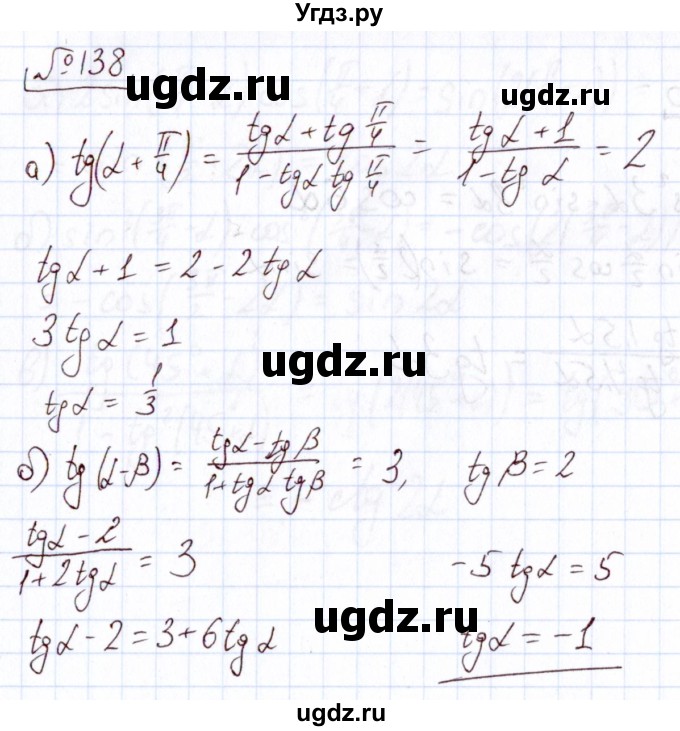 Угдз.ру
№138
ugdz.ru
ugdz.ru
а) tg(α + π/4) = (tgα + tg π/4)/(1 - tgα tg π/4) = (tgα + 1)/(1 - tg α) = 2
tgα + 1 = 2 - 2 tg α
ugdz.ru
3 tg α = 1
ugdz.ru
tgα = 1/3
ugdz.ru
б) tg(α-β) = (tgα - tg β)/(1 + tgα tgβ) = 3, tg β = 2
(tgα - 2)/(1 + 2tgα) = 3
-5 tgα = 5
ugdz.ru
ugdz.ru
tgα - 2 = 3 + 6 tg α
tgα = -1
ugdz.ru